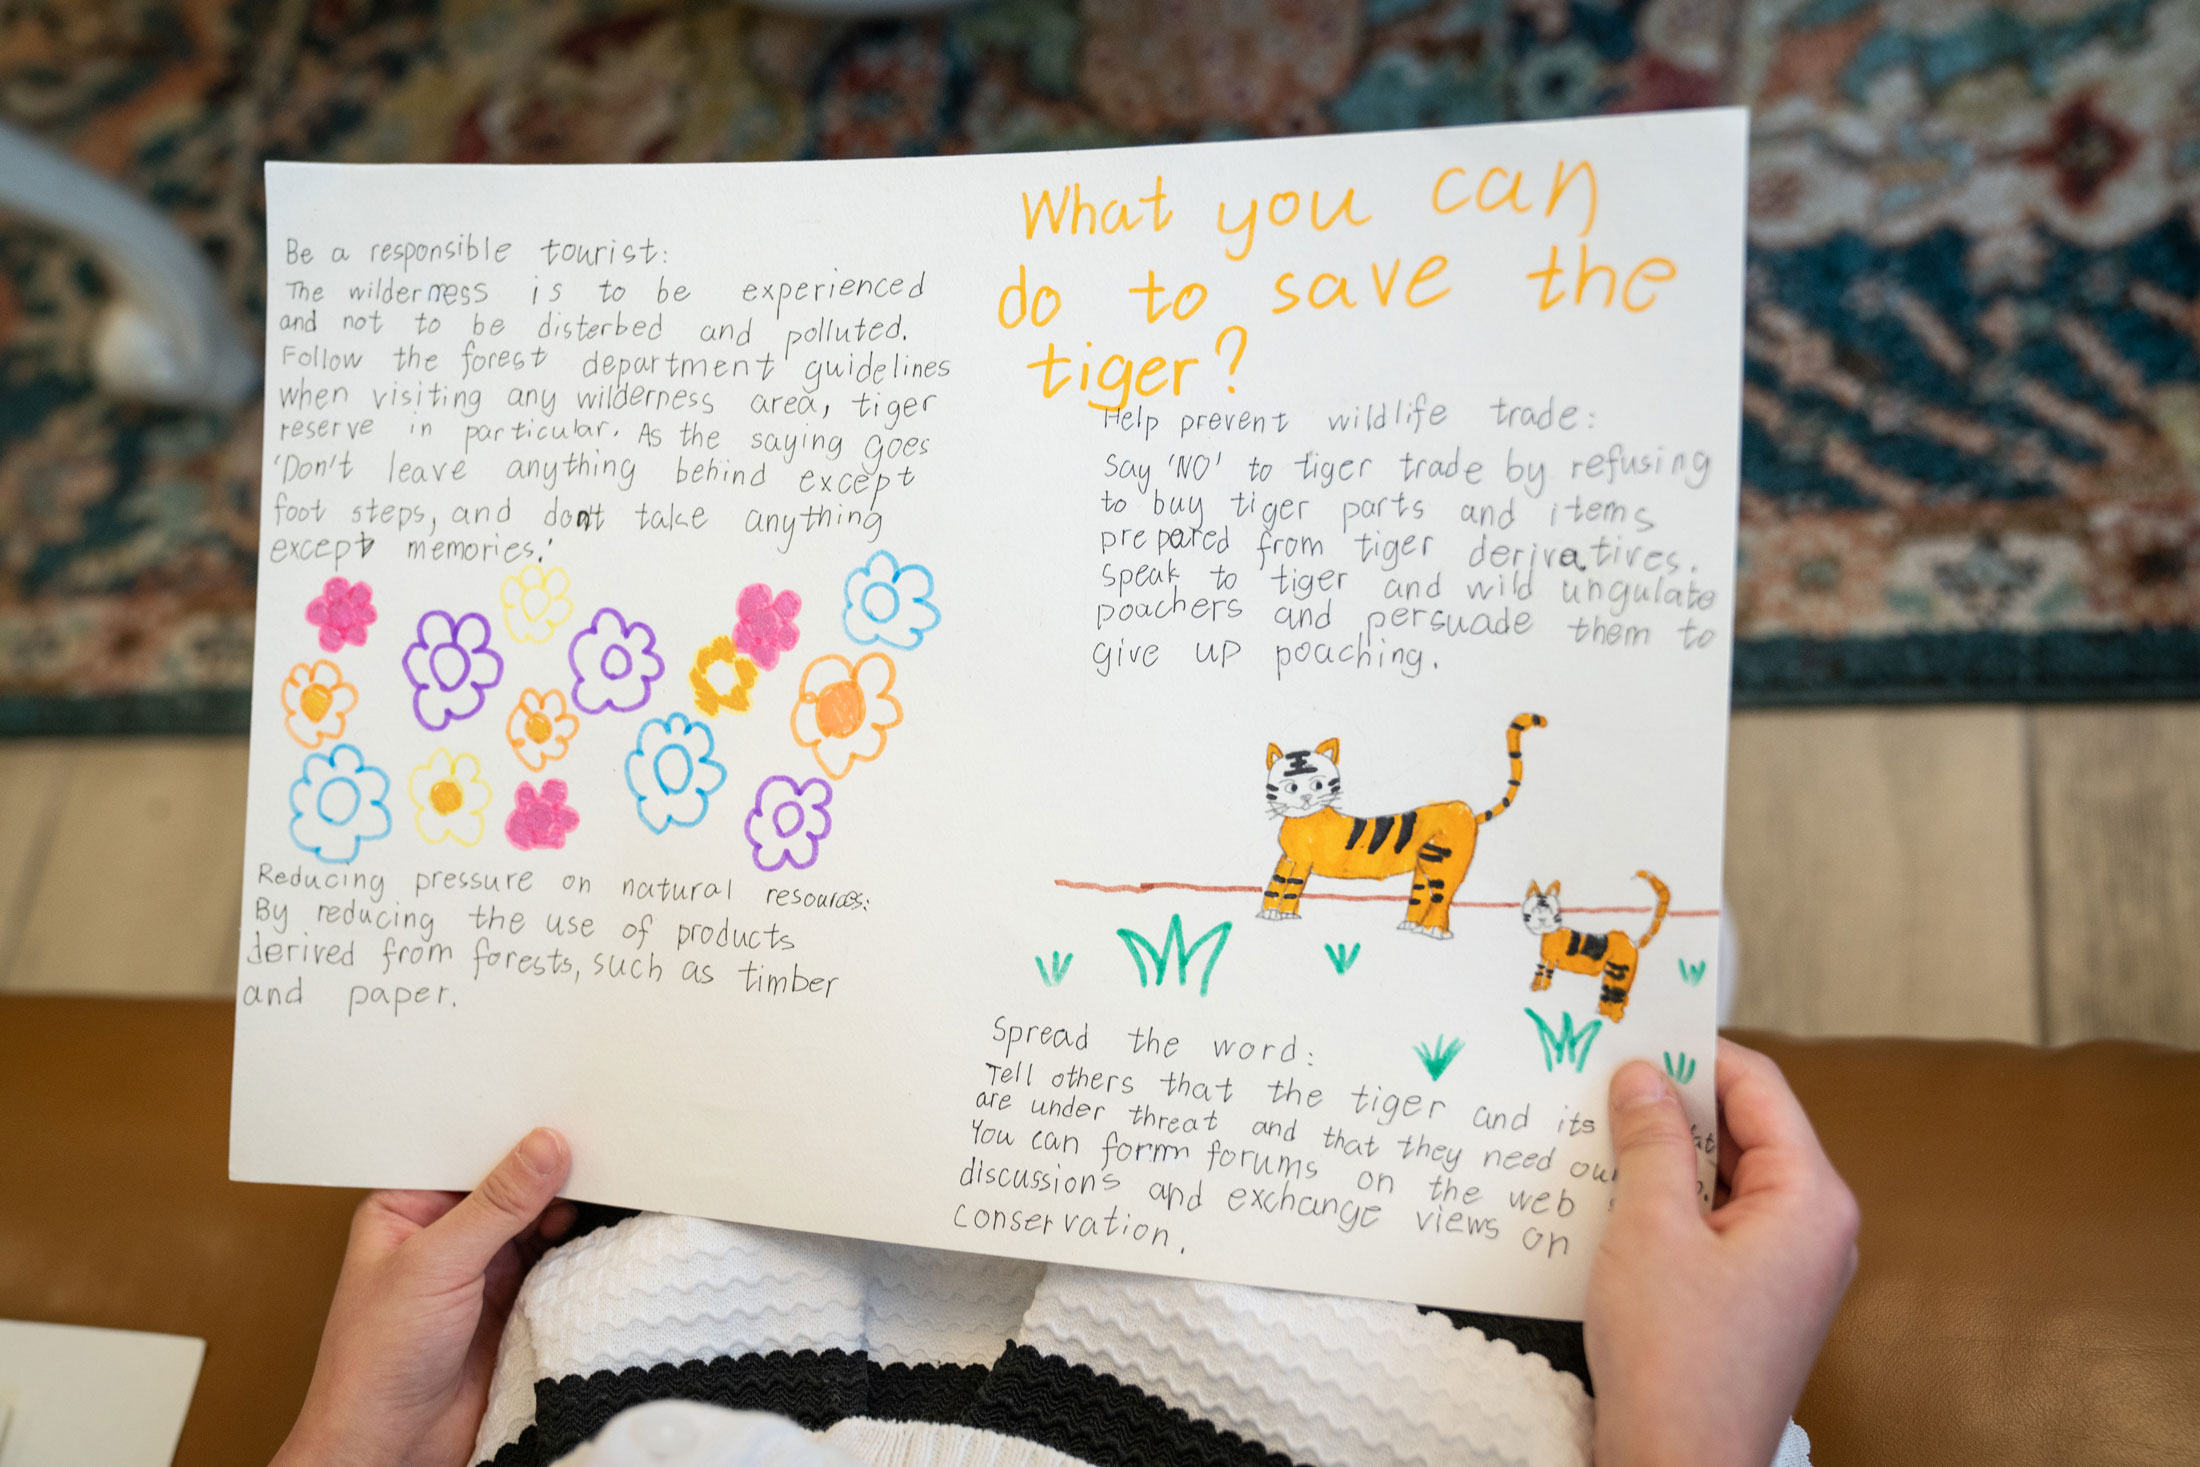 Be a responsible tourist:
The wilderness is to be experienced
and not to be disterbed and polluted.
Follow the forest department guidelines
when visiting any wilderness area, tiger
reserve in particular. As the saying goes
'Don't leave anything behind except
foot steps, and don't take anything
except memories.'
Reducing pressure on natural resources:
By reducing the use of products
derived from forests, such as timber
and paper.
What you can
do to save the
tiger?
Help prevent wildlife trade:
Say 'NO' to tiger trade by refusing
to buy tiger parts and items
prepared from tiger derivatives.
Speak to tiger and wild ungulate
poachers and persuade them to
give up poaching.
Spread the word:
Tell others that the tiger and its
are under threat and that they need
You can form forums on the web
discussions and exchange views on
conservation.